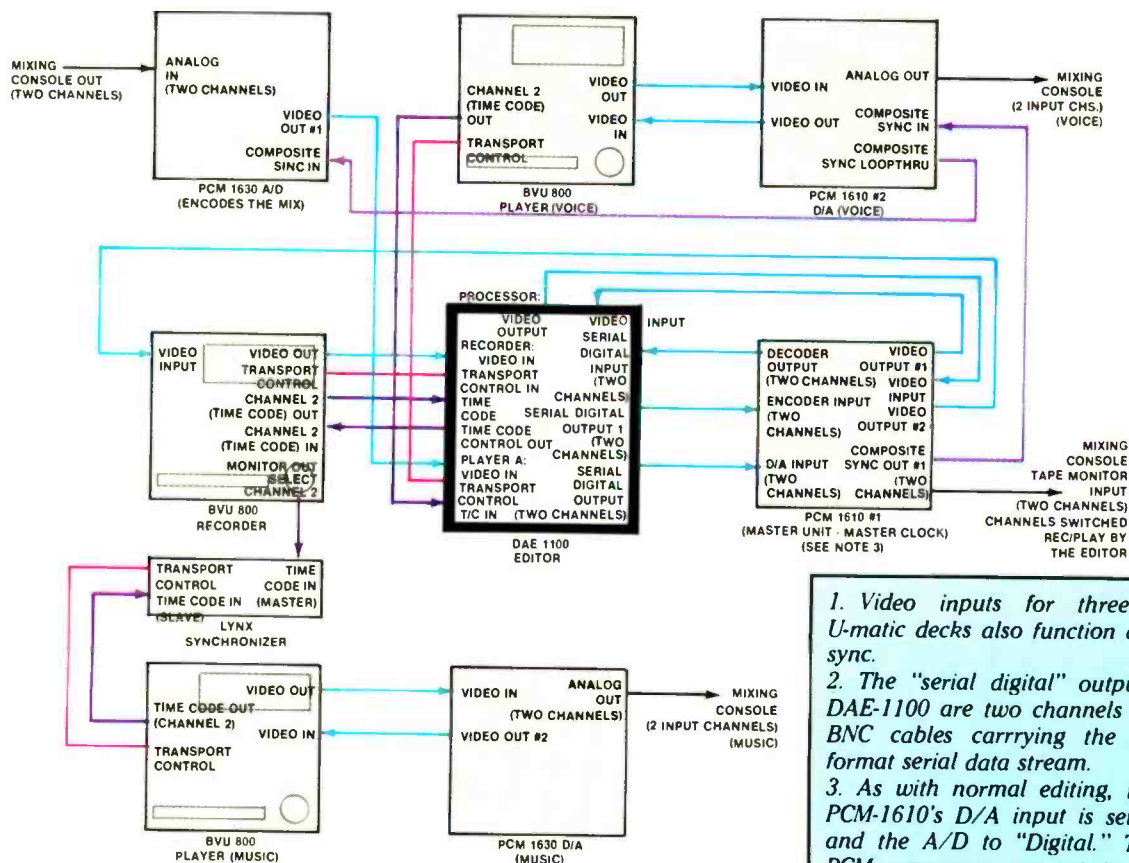 MIXING
CONSOLE OUT
(TWO CHANNELS)
ANALOG
IN
(TWO CHANNELS)
VIDEO
OUT #1
COMPOSITE
SINC IN
PCM 1630 A/D
(ENCODES THE MIX)
CHANNEL 2
(TIME CODE)
OUT
TRANSPORT
CONTROL
VIDEO
OUT
VIDEO
IN
BVU 800
PLAYER (VOICE)
VIDEO IN
VIDEO OUT
ANALOG OUT
COMPOSITE
SYNC IN
COMPOSITE
SYNC LOOPTHRU
PCM 1610 #2
D/A (VOICE)
MIXING
CONSOLE
(2 INPUT CHS.)
(VOICE)
VIDEO
INPUT
VIDEO OUT
TRANSPORT
CONTROL
CHANNEL 2
(TIME CODE) OUT
CHANNEL 2
(TIME CODE) IN
MONITOR OUT
SELECT
CHANNEL 2
BVU 800
RECORDER
PROCESSOR:
VIDEO
OUTPUT
RECORDER:
VIDEO IN
TRANSPORT
CONTROL IN
TIME
CODE
TIME CODE
CONTROL OUT
PLAYER A:
VIDEO IN
TRANSPORT
CONTROL
T/C IN
VIDEO INPUT
SERIAL
DIGITAL
INPUT
(TWO
CHANNELS)
SERIAL DIGITAL
OUTPUT 1
(TWO
CHANNELS)
SERIAL
DIGITAL
OUTPUT
(TWO CHANNELS)
DAE 1100
EDITOR
DECODER
OUTPUT
(TWO CHANNELS)
ENCODER INPUT
(TWO
CHANNELS)
D/A INPUT
(TWO
CHANNELS)
VIDEO
OUTPUT #1
VIDEO
INPUT
VIDEO
OUTPUT #2
COMPOSITE
SYNC OUT #1
(TWO
CHANNELS)
PCM 1610 #1
(MASTER UNIT - MASTER CLOCK)
(SEE NOTE 3)
MIXING
CONSOLE
TAPE MONITOR
INPUT
(TWO CHANNELS)
CHANNELS SWITCHED
REC/PLAY BY
THE EDITOR
TRANSPORT
CONTROL
TIME CODE IN
(SLAVE)
TIME
CODE IN
(MASTER)
LYNX
SYNCHRONIZER
VIDEO OUT
TIME CODE OUT
(CHANNEL 2)
VIDEO IN
TRANSPORT
CONTROL
BVU 800
PLAYER (MUSIC)
VIDEO IN
VIDEO OUT #2
ANALOG
OUT
(TWO CHANNELS)
PCM 1630 D/A
(MUSIC)
MIXING
CONSOLE
(2 INPUT CHANNELS)
(MUSIC)
1. Video inputs for three
U-matic decks also function a
sync.
2. The "serial digital" outpu
DAE-1100 are two channels
BNC cables carrrying the
format serial data stream.
3. As with normal editing,
PCM-1610's D/A input is se
and the A/D to "Digital." T